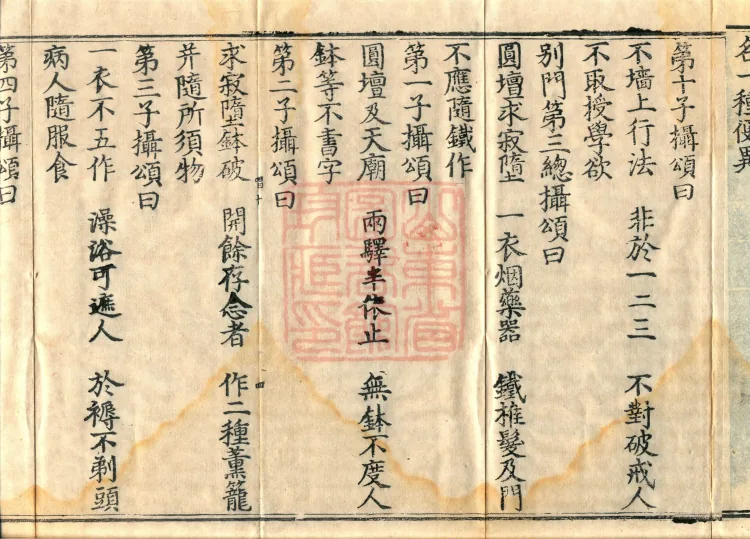 第十子攝頌曰
不墻上行法　非於一二三　不對破戒人
不取授學欲
別門第三總攝頌曰
圓壇求寂墮　一衣烟藥器　鐵椎髮及門
不應隨鐵作
第一子攝頌曰
圓壇及天廟　兩驛半依止　無鉢不度人
鉢等不書字
第二子攝頌曰
求寂墮鉢破　開餘存念者　作二種薰籠
并隨所須物
第三子攝頌曰
一衣不五作　澡浴可遮人　於褥不剃頭
病人隨服食
第四子攝頌曰